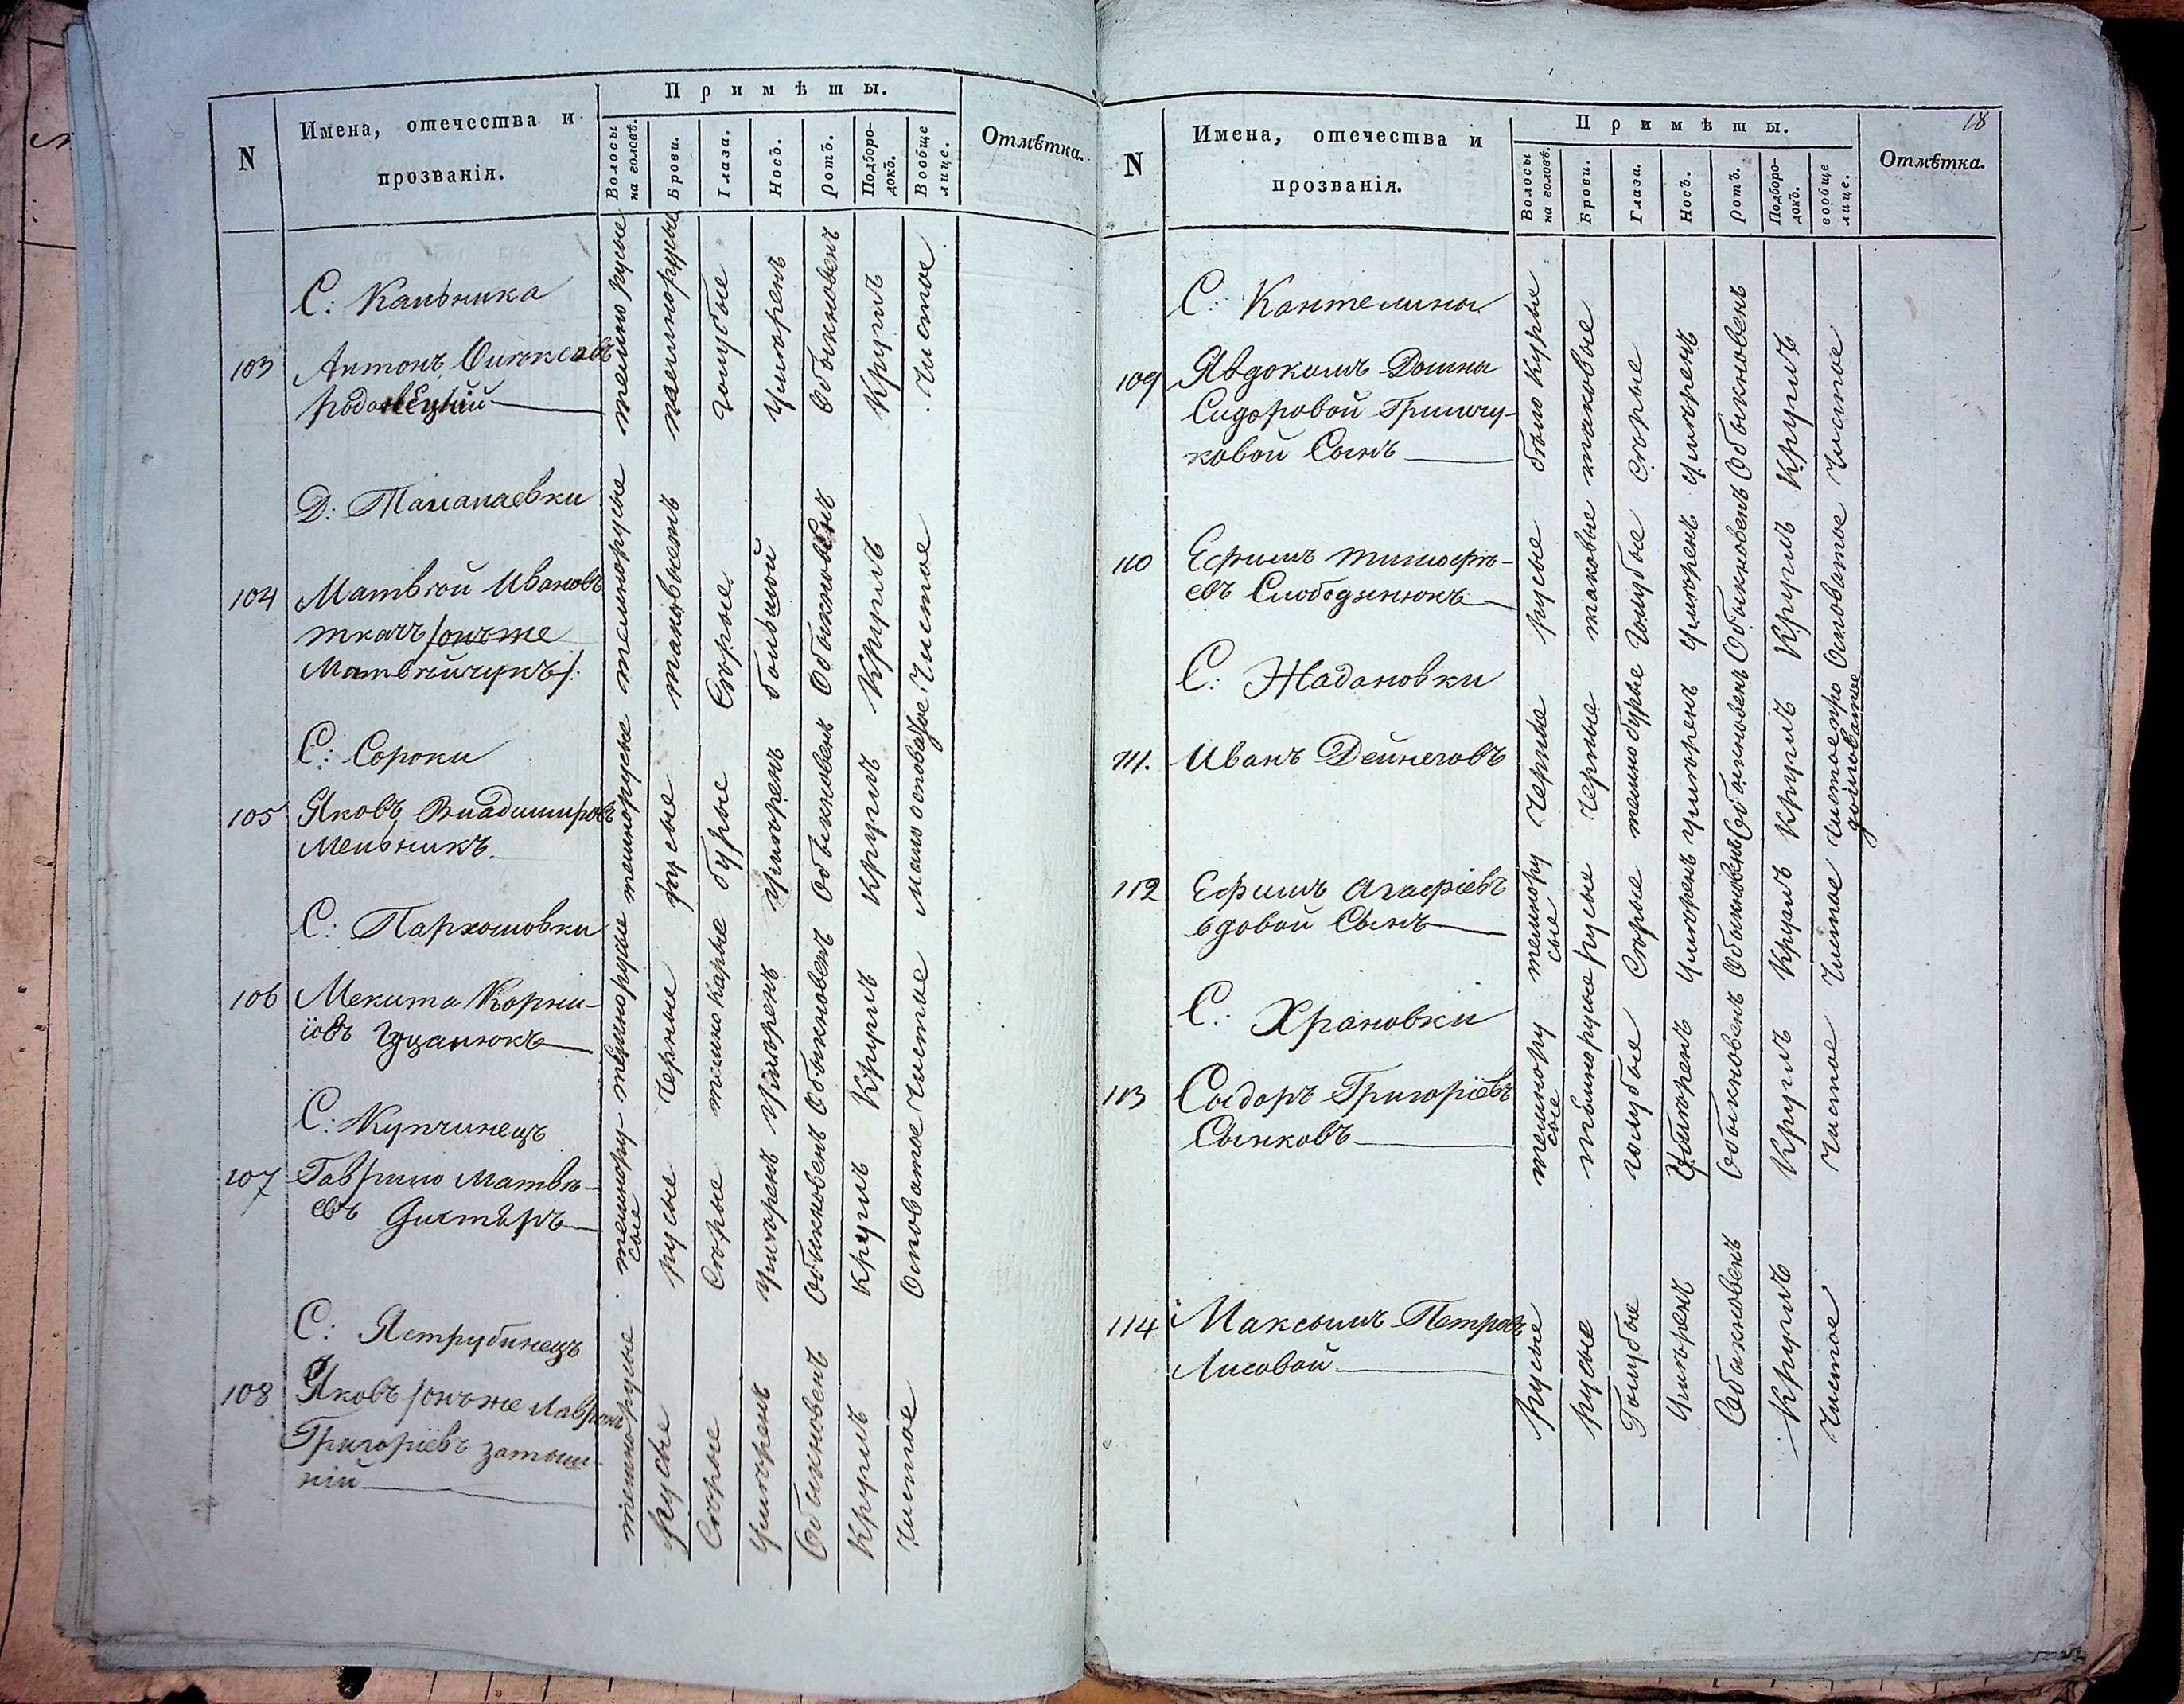 N
Имена, отечества и
прозванія.
Примѣты.
Волосы на головѣ.
Брови.
Глаза.
Носъ.
Ротъ.
Подбородокъ.
Вообще лице.
Отмѣтка.
С: Кальника
103 Антонъ
темно русые темнорусые голубые умѣренъ Обыкновенъ Круглъ Чистое
Д: Талалаевки
104 Матвѣй Ивановъ
ткачъ /онъ же
Матвѣйчукъ/:
темнорусые таковыежъ Сѣрые большой Обыкновенъ Круглъ Чистое
С: Сороки
105 Яковъ Владимировъ
Мельникъ
темнорусые русые бурые умѣренъ Обыкновенъ Круглъ мало осповатое
С: Пархомовки
106 Мекита Корни-
іовъ Гуцалюкъ
темнорусые Черные темно карые умѣренъ Обыкновенъ Круглъ Чистое
С: Купчинецъ
107 Гаврило Матвѣ-
евъ
темнору-
сые русые Сѣрые умѣренъ Обыкновенъ Круглъ Осповатое
С: Яструбинецъ
108 Яковъ /онъ же Лавринъ
Григоріевъ
темнорусые русые Сѣрые умѣренъ Обыкновенъ Круглъ Чистое
18
N
Имена, отечества и
прозванія.
Примѣты.
Волосы на головѣ.
Брови.
Глаза.
Носъ.
Ротъ.
Подбородокъ.
вообще лице.
Отмѣтка.
С: Кантелины
109 Явдокимъ Домны
Сидоровой Гришчу-
ковой Сынъ
бѣло курые таковые сѣрые умѣренъ Обыкновенъ Круглъ Чистое
110 Ефимъ тимофѣ-
евъ Слободянюкъ
русые таковые Голубые умѣренъ Обыкновенъ Круглъ Осповатое
С: Жадановки
111. Иванъ Дейнеговъ
Черные Черные темно бурые умѣренъ Обыкновенъ Круглъ Чистое про
долговатое
112 Ефимъ Агафіевъ
вдовой Сынъ
темнору
сые русые Сѣрые Умѣренъ Обыкновенъ Круглъ Чистое
С: Храновки
113 Сыдоръ Григоріевъ
Сынковъ
темнору
сые темнорусые голубые Умѣренъ Обыкновенъ Круглъ Чистое
114 Максымъ Петровъ
Лисовой
русые русые Голубые Умѣренъ Обыкновенъ Круглъ Чистое